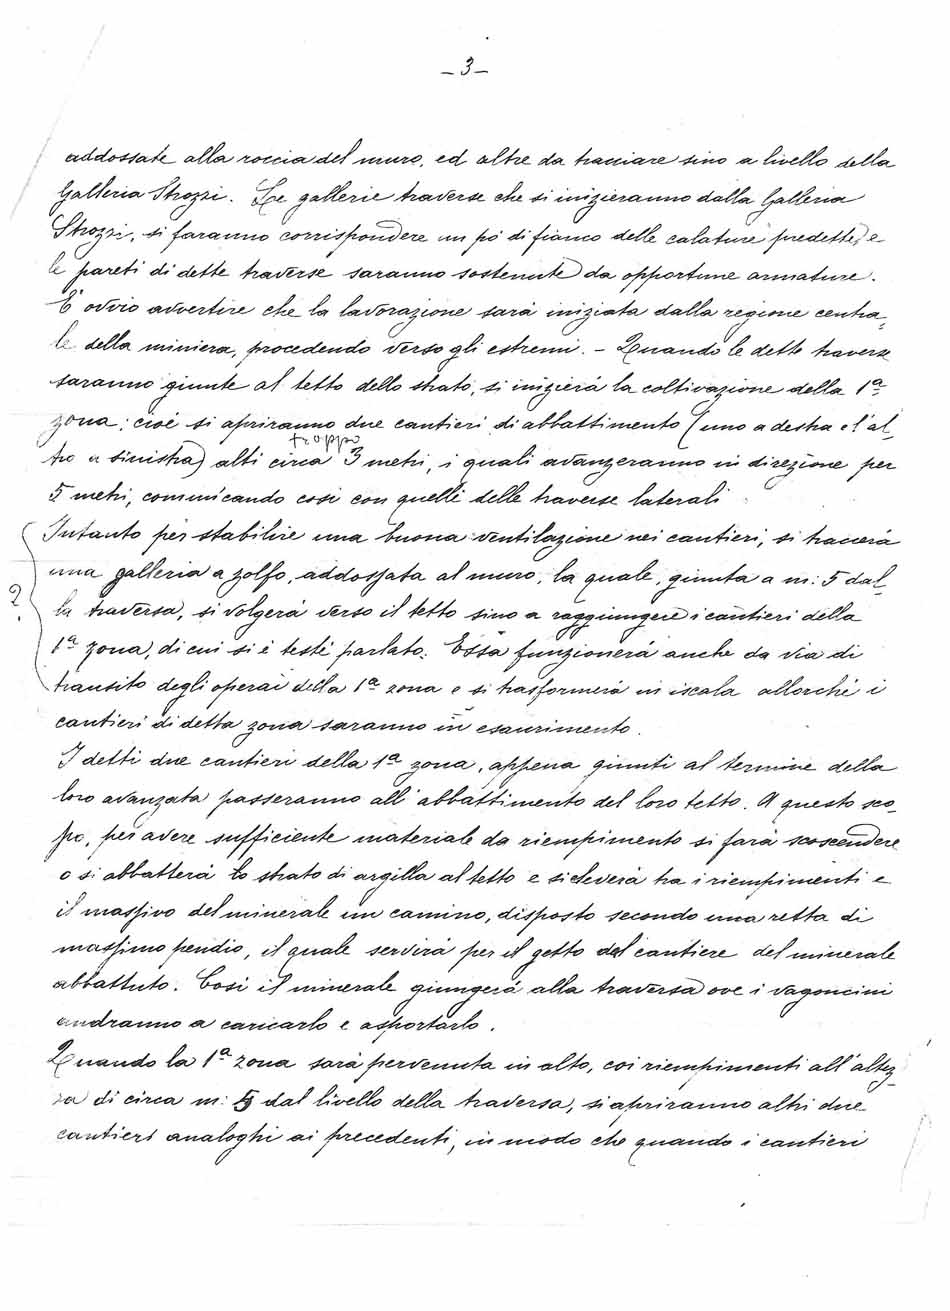 _ 3 _
addossate alla roccia del muro, ed altre da tracciare sino a livello della
Galleria Strozzi. Le gallerie traverse che si inizieranno dalla Galleria
Strozzi, si faranno corrispondere un pó di fianco delle calature predette, e
le pareti di dette traverse saranno sostenute da opportune armature.
E' ovvio avvertire che la lavorazione sará iniziata dalla regione centra-
le della miniera, procedendo verso gli estremi. - Quando le dette traverse
saranno giunte al tetto dello strato, si inizierá la coltivazione della 1ª
zona; cioé si apriranno due cantieri di abbattimento (uno a destra e l'al-
troppo
tro a sinistra) alti circa 3 metri, i quali avanzeranno in direzione per
5 metri, comunicando cosí con quelli delle traverse laterali.
Intanto per stabilire una buona ventilazione nei cantieri, si traccerá
una galleria a zolfo, addossata al muro, la quale, giunta a m: 5 dal-
?
la traversa, si volgerá verso il tetto sino a raggiungere i cantieri della
1ª zona, di cui si é testé parlato. Essa funzionerá anche da via di
transito degli operai della 1ª zona e si trasformerá in iscala allorché i
cantieri di detta zona saranno in esaurimento.
I detti due cantieri della 1ª zona, appena giunti al termine della
loro avanzata passeranno all'abbattimento del loro tetto. A questo sco-
po, per avere sufficiente materiale da riempimento si fará scoscendere
o si abbatterá lo strato di argilla al tetto e si eleverá tra i riempimenti e
il massivo del minerale un camino, disposto secondo una retta di
massimo pendio, il quale servirá per il getto dal cantiere del minerale
abbattuto. Cosí il minerale giungerá alla traversa ove i vagoncini
andranno a caricarlo e asportarlo.
Quando la 1ª zona sará pervenuta in alto, coi riempimenti all'altez-
za di circa m: 5 dal livello della traversa, si apriranno altri due
cantieri analoghi ai precedenti, in modo che quando i cantieri